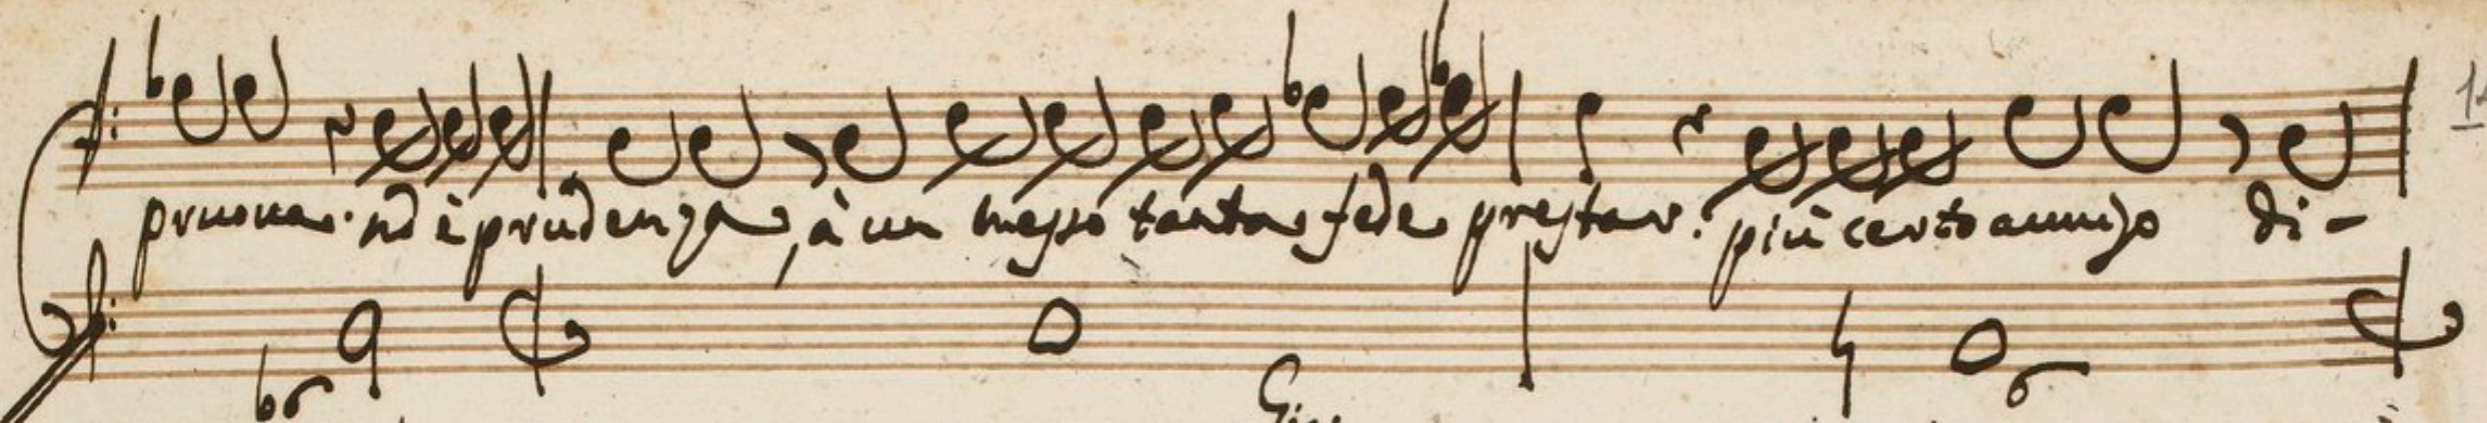 pruoua. nō è prudenza, à un messo tanta fede prestar. più certo auuiso di-